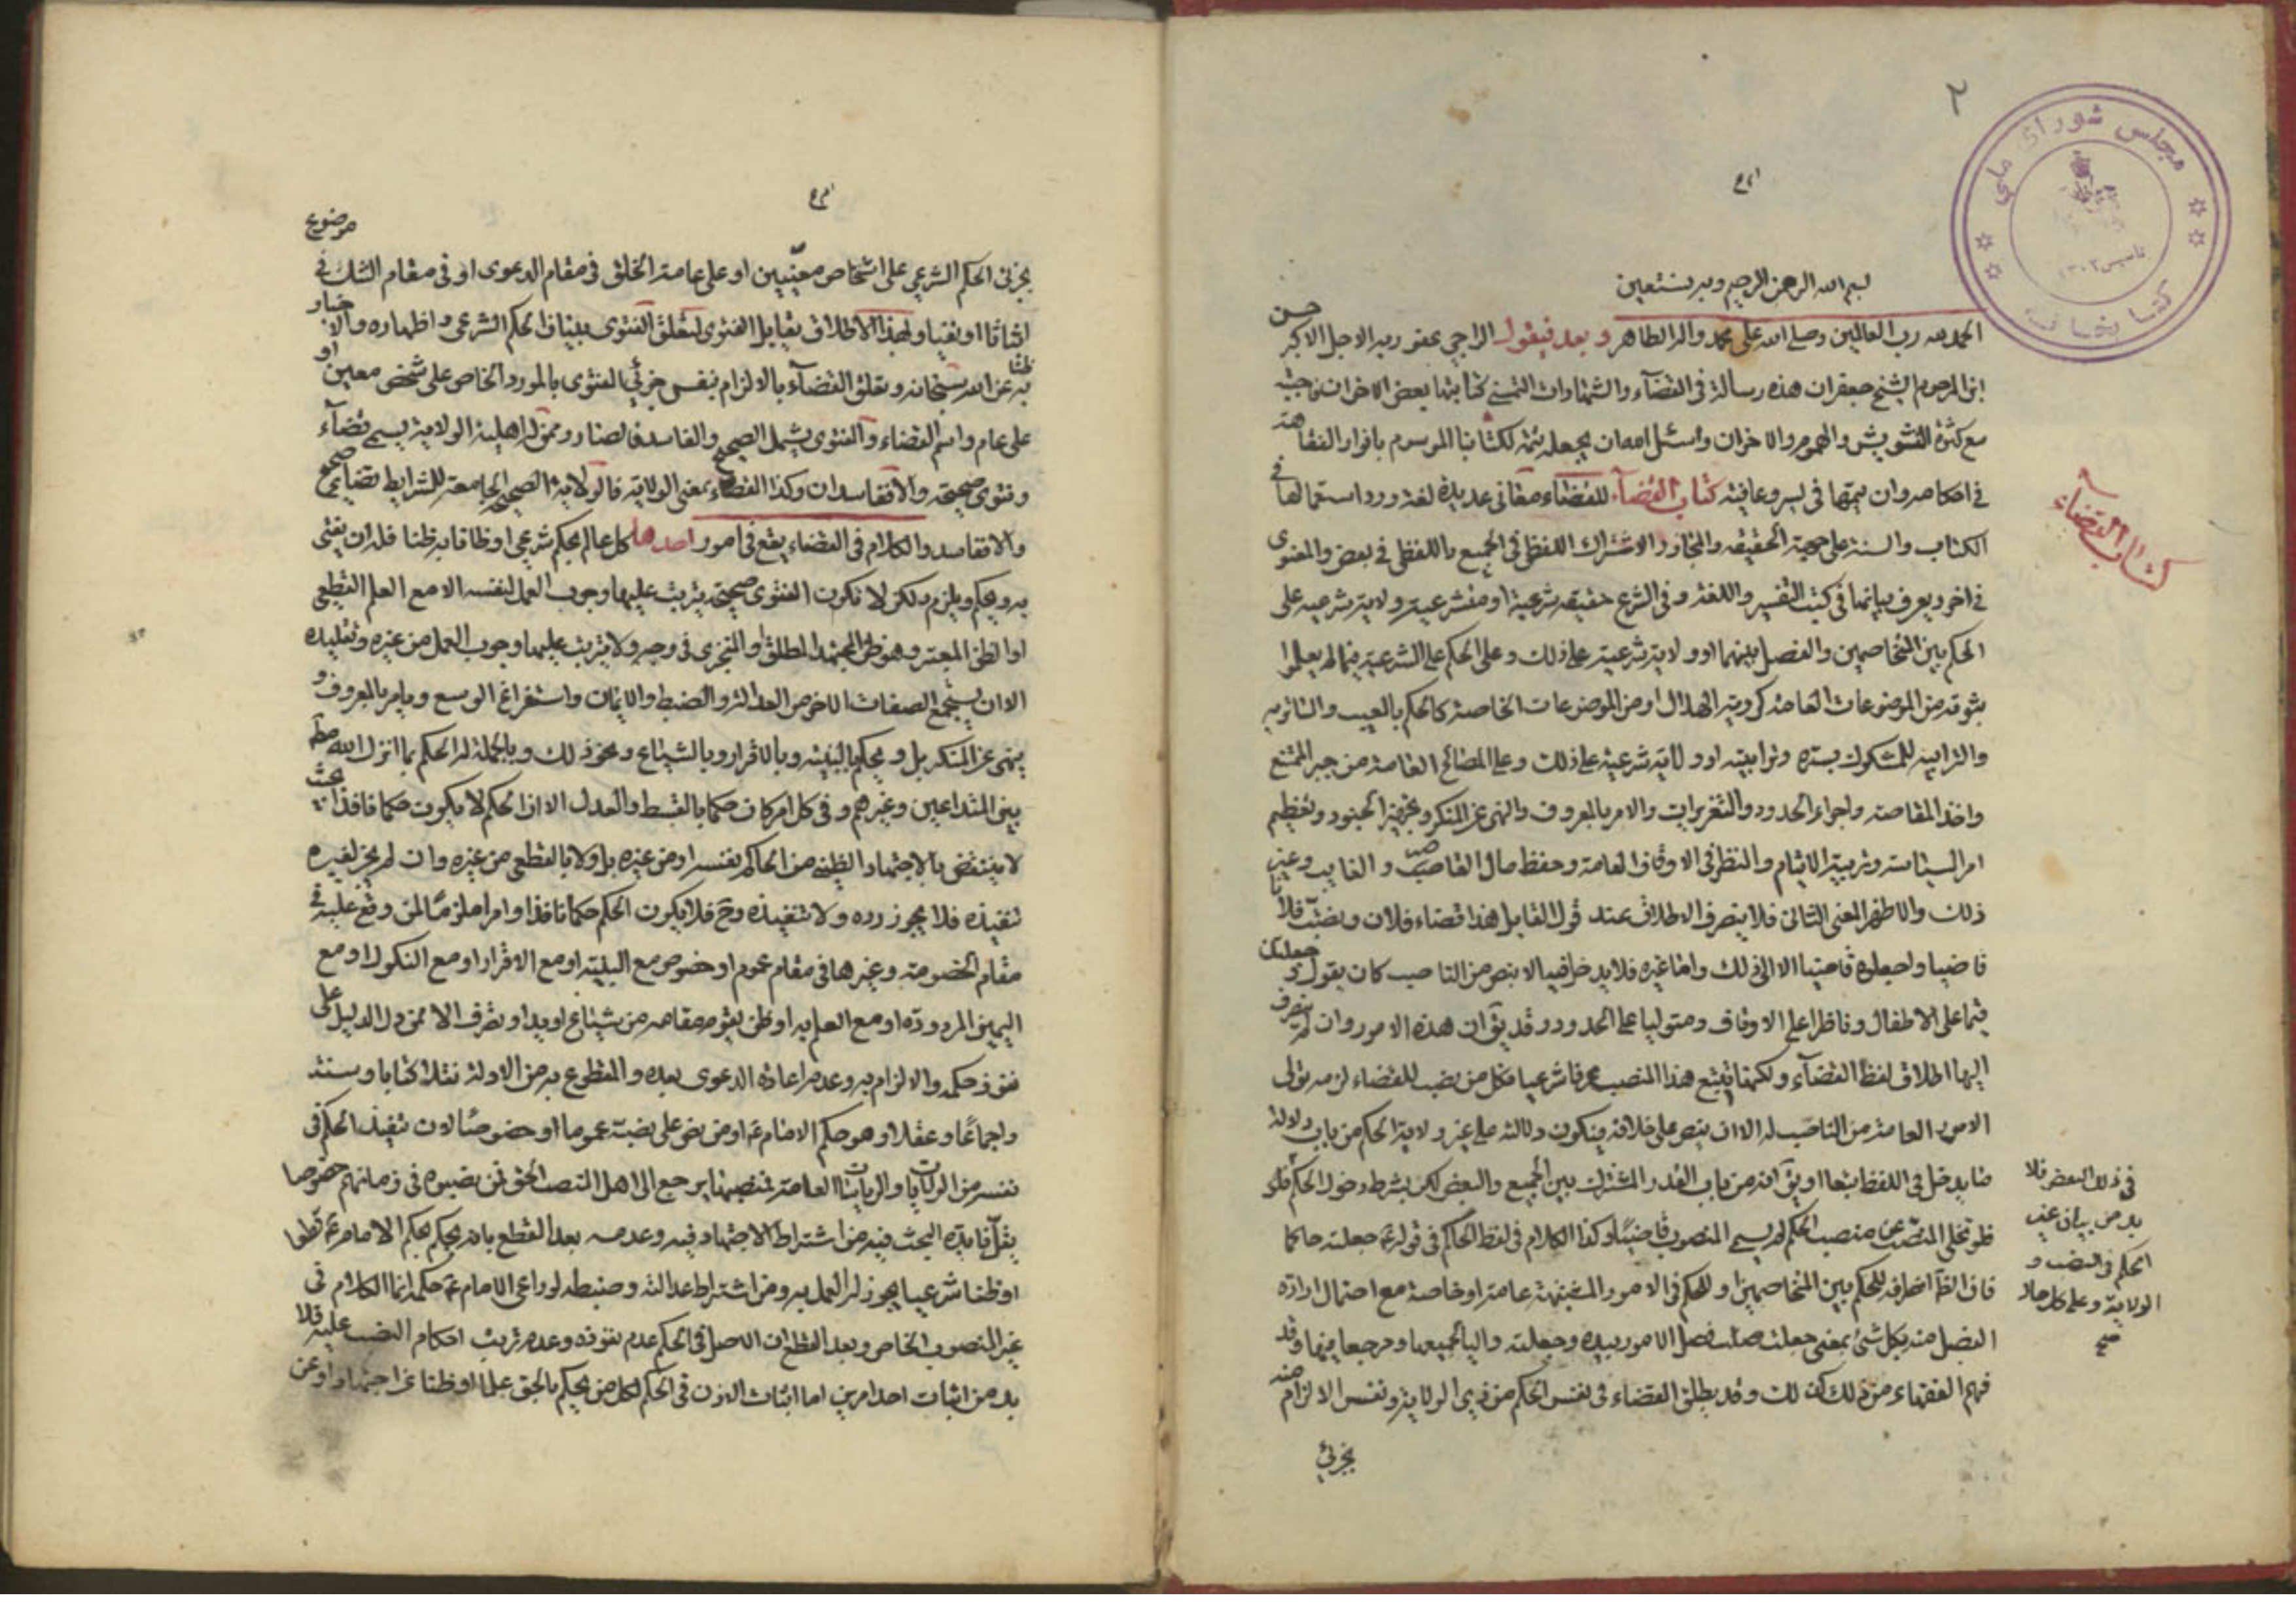 ٢
مجلس شورای ملی
تاسیس ١٣٠٢
کتابخانه
بسم الله الرحمن الرحيم وبه نستعين
الحمد لله رب العالمين وصلى الله على محمد واله الطاهر وبعد فيقول الراجي عفو ربه الاجل الاكبر حسن
ابن المرحوم الشيخ جعفر ان هذه رسالة في القضآء والشهادات التمس كتابتها بعض الاخوان فاجبته
مع كثرة التشويش والهموم والاحزان واسئل الله ان يجعله تتمة لكتابنا الموسوم بانوار الفقاهة
في احكامه وان يتمها في يسر وعافية كتاب القضآء للقضاء معاني عديدة لغة ورد استعمالها في
الكتاب والسنة على جهة الحقيقة والمجاز والاشتراك اللفظي في الجميع واللفظي في بعض والمعنوي
في اخر ويعرف بيانها في كتب التفسير واللغة وفي الشرع حقيقة شرعية او متشرعية ولاية شرعية على
الحكم بين المتخاصمين والفصل بينهما او ولاية شرعية على ذلك وعلى الحكم على الشرعية فيما لم يعلموا
بثبوته من الموضوعات العامة كروية الهلال او من الموضوعات الخاصة كالحكم بالعيب
والنرابية للمشكوك بستره ونرابيته او ولاية شرعية على ذلك وعلى المصالح العامة من جبر الممتنع
واخذ المقاصة واجراء الحدود والتعزيرات والامر بالمعروف والنهي عن المنكر وتجهيز الجنود وتعظيم
امر السياسة وتربية الايتام والنظر في الاوقاف العامة وحفظ مال القاصر والغايب وغير
ذلك والاظهر المعنى الثاني فلا ينصرف الاطلاق عند قول القايل هذا قضاء فلان ونصبت فلانا
قاضيا واجعلوه قاضيا الا الى ذلك واما غيره فلا يدخل فيه الا بنص من الناصب كان يقول وجعلتك
قيما على الاطفال وناظرا على الاوقاف ومتوليا على الحدود وقد يق ان هذه الامور وان لم ينصرف
اليها اطلاق لفظ القضآء ولكنها تتبع هذا المنصب عرفا شرعيا فكل من نصب للقضاء لزمه تولي
الامور العامة من الناصب له الا ان ينص على خلافه فيكون دلالته على غير ولاية الحكم من باب دلالة
ما يدخل في اللفظ تبعا او يق انه من باب القدر المشترك بين الجميع والبعض لكن بشرط دخول الحكم
فلو تخلى المنصب عن منصب الحكم لم يسم المنصوب قاضيا وكذا الكلام في لفظ الحاكم في قوله ع جعلته حاكما
فان الظ انصرافه للحكم بين المتخاصمين او للحكم في الامور المشتبهة عامة او خاصة مع احتمال ارادة
الفصل منه بكل شئ بمعنى جعلت فصل الامور بيده وجعلته واليا لجميعها ومرجعا فيها وقد
فهم الفقهاء من ذلك كذلك وقد يطلق القضاء في نفس الحكم من ذي الولاية ونفس الالزام منه
بجزئي
كتاب القضاء
في ذلك البعض فلا
بد من بيان غير
الحكم في النصب و
الولاية وعلى كل حال
صح
موضوع
بجزئي الحكم الشرعي على اشخاص معيّنين او على عامة الخلق في مقام الدعوى او في مقام الشك في
اثباتا او نفيا ولهذا الاطلاق يقابل الفتوى لتعلق الفتوى ببيان الحكم الشرعي واظهاره والاخبار
به عن الله سبحانه ظنا وتعلق القضآء بالالزام بنفس جزئي الفتوى بالمورد الخاص على شخص معين او
على عام واسم القضاء والفتوى يشمل الصحيح والفاسد فالصادر ممن له اهلية الولاية يسمى قضآء
وفتوى صحيحة والا فاسدان وكذا القضاء بمعنى الولاية فالولاية الصحيحة الجامعة للشرايط قضاء صحيح
والا فاسد والكلام في القضاء يقع في امور احدها كل عالم بحكم شرعي او ظانا به ظنا فله ان يفتي
به ويحكم ويلزم ولكن لا تكون الفتوى صحيحة يترتب عليها وجوب العمل لنفسه الا مع العلم القطعي
او الظن المعتبر وهو ظن المجتهد المطلق او المتجزي في وجه ولا يترتب عليها وجوب العمل من غيره وتقليده
الا ان يستجمع الصفات الاخر من العدالة والضبط والايمان واستفراغ الوسع ويامر بالمعروف و
ينهى عن المنكر بل ويحكم بالبينة وبالاقرار وبالشياع ونحو ذلك وبالجملة له الحكم بما انزل الله مط
بين المتداعين وغيرهم وفي كل امر كان حكما بالقسط والعدل الا ان الحكم لا يكون حكما نافذا بحيث
لا ينتقض بالاجتهاد الظني من الحاكم نفسه او من غيره بل ولا بالقطعي من غيره وان لم يجز لغيره
تنفيذه فلا يجوز رده ولا تنفيذه وح فلا يكون الحكم حكما نافذا وامرا ملزما لمن وقع عليه في
مقام الخصومة وغيرها في مقام عموم او خصوص مع البينة او مع الاقرار او مع النكول او مع
اليمين المردودة او مع العلم به او ظن يقوم مقامه من شياع او يد او تصرف الا ممن دل الدليل على
نفوذ حكمه والالزام به وعدم اعادة الدعوى بعده والمقطوع به من الادلة نقلا كتابا وسنة
واجماعا وعقلا هو حكم الامام ع او من نص على نصبه عموما او خصوصا لان تنفيذ الحكم في
نفسه من الولايات والرياسات العامة فمنصبها يرجع الى اهل المنصب الحق فمن نصبوه في زمانهم خصوصا
يقل فايدة البحث فيه من اشتراط الاجتهاد فيه وعدمه بعد القطع بانه يحكم بحكم الامام ع قطعا
او ظنا شرعيا يجوز له العمل به ومن اشتراط عدالته وضبطه لو راعى الامام ع حكمه انما الكلام في
غير المنصوب الخاص وبعد القطع ان الاصل في الحكم عدم نفوذه وعدم ترتب احكام النصب عليه فلا
بد من اثبات احد امرين اما اثبات الاذن في الحكم لكل من يحكم بالحق علما او ظنا عن اجتهاد او عن